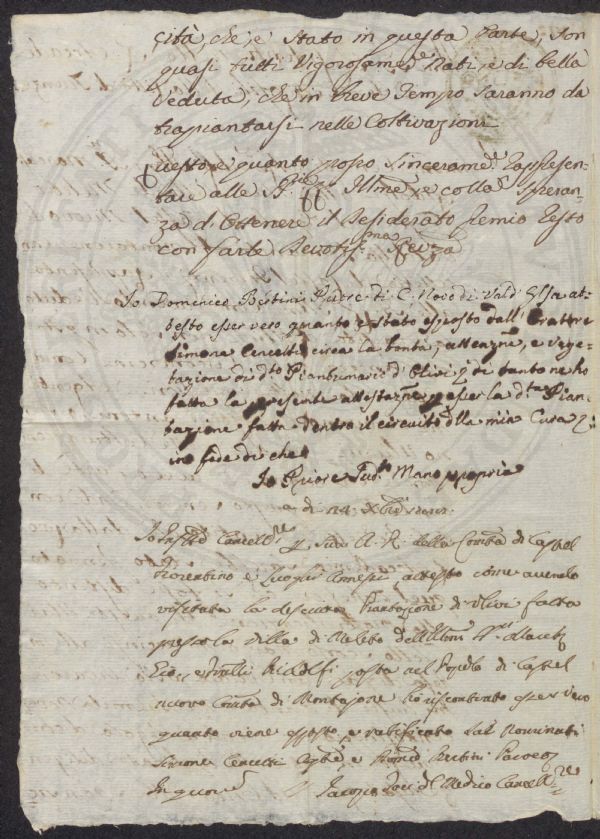 cità, che, e stato in questa Parte, son
quasi tutti Vigorosame. Nati, e di bella
Veduta, che in breve Tempo saranno da
trapiantarsi nelle Coltivazioni
Questo è quanto posso sinceramte. Rappresen-
tare alle Illme. e colla Speran-
za di Ottenere il Desiderato Premio Resto
con farle
Io Domenico Bertini Priore di C. Novo di Vald'Elsa at-
testo esser vero quanto è stato esposto dall' Oratore
Simone Cencetti circa la bontà, attenzne., e vege-
tazione di dto. Piantonario d'Olivi, e di tanto ne ho
fatta la presente attestazne. per la dta. Pian-
tazione fatta dentro il circuito della mia Cura
in fede di che
Io Priore Sudto. Mano propria
a di 24
Io Cancellre. per Sua A. R. della Comtà. di Castel
Fiorentino e suoi annessi attesto come avendo
visitata la descritta Piantazione di Ulivi fatta
presso la Villa di Meleto dell'Illmi. SSri.
e Fratelli Ridolfi posta nel Popolo di Castel
nuovo Comtà. di Montajone ho riscontrato esser vero
quanto viene esposto, e ratificato dal Nominati
Simone Cencetti Agte., e Bertini
In quorum
Jacopo del Medico Cancellre.